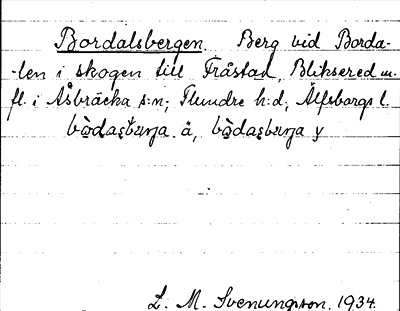 Bordalsbergen. Berg vid Borda-
-len i skogen till Fråstad, Bliksered m.
fl. i Åsbräcka s:n; Flundre h:d, Älfsborgs l.
ä, y
L. M. Svenungsson. 1934.